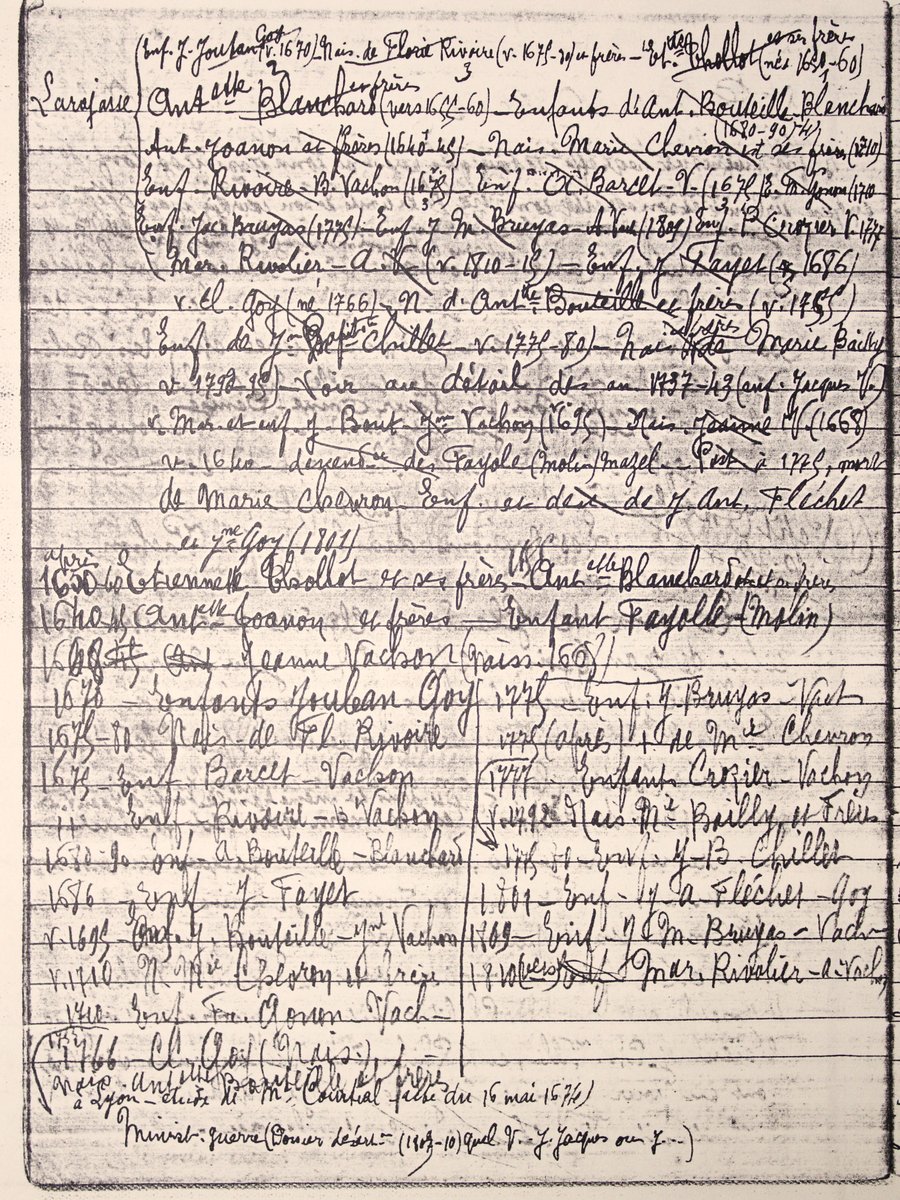 Enf. J. Jouban Goy v. 1670) Nais. de Florie Rivoire (v. 1675-80) et frères - Et. Chollot et ses frères (nés 1650-60)
Larajasse Antette Blanchard et frères (vers 1655-60) - Enfants d'Ant. Bouteille Blanchard
Ant. Joanon et frères (1640-45) - Nais. Marie Chevron et ses frères (1710) (1680-90)
Enf. Rivoire - B. Vachon (1675) Enf. Barcet - V. (1675) Gonon (1710
Enf. Jac. Bruyas (1775) - Enf. J. M. Bruyas - A. Vach (1809) Enf. P. Crozier V. 1777
Mar. Rivolier - A. V. (v. 1810-15) - Enf. J. Fayet (1686)
v. Cl. Goy (né 1766) - N. d'Antte Bouteille et frères (v. 1765)
Enf. de Jn Bapt Chillet - v. 1775-80) - Nais. de Marie Bailly et frères
v. 1792-95) - Voir au détail des an 1737-43 (enf. Jacques V.)
v. Mar. et enf. J. Bout. Jne Vachon (1695) - Nais. Jeanne V. (1668)
v. 1640 - descendce des Fayole (Molin) Mazel - Post. à 1775, mort
de Marie Chevron Enf. et de J. Ant. Fléchet
et Jne Goy (1801)
après
1650 60 Etiennette Chollot et ses frères - Antette Blanchard et frères
1640 45 (Antette Joanon et frères - Enfant Fayolle (Molin)
1668 Jeanne Vachon (naiss. 166 )
1670 - Enfants Jouban Goy
1675-80 Nais. de Fl. Rivoire
1675 - Enf. Barcet - Vachon
" Enf. Rivoire - B. Vachon
1680-90 Enf. A. Bouteille - Blanchard
1686 - Enf. J. Fayet
v. 1695 - Enf. J. Bouteille - Jne Vachon
v. 1710 N. Mie Chevron et frères
1710 Enf. Fr. Gonon - Vach -
1766 Cl. Goy (Nais.)
Nais. Antette Bouteille et frères
1775 - Enf. J. Bruyas - Vach
1775 (après) + de Mie Chevron
1777 - Enfants Crozier - Vachon
v. 1792 Nais. Mie Bailly et Frères
1775-80 - Enf. J-B. Chillet
1801 - Enf. J. A. Fléchet - Goy
1809 - Enf. J. M. Bruyas - Vach -
1810 (vers) Mar. Rivolier - A. Vachon
à Lyon - étude de Me Courtial - acte du 16 mai 1674)
Minist. guerre (Dossier désert - (1809-10) quel V. - J. Jacques ou J. - )